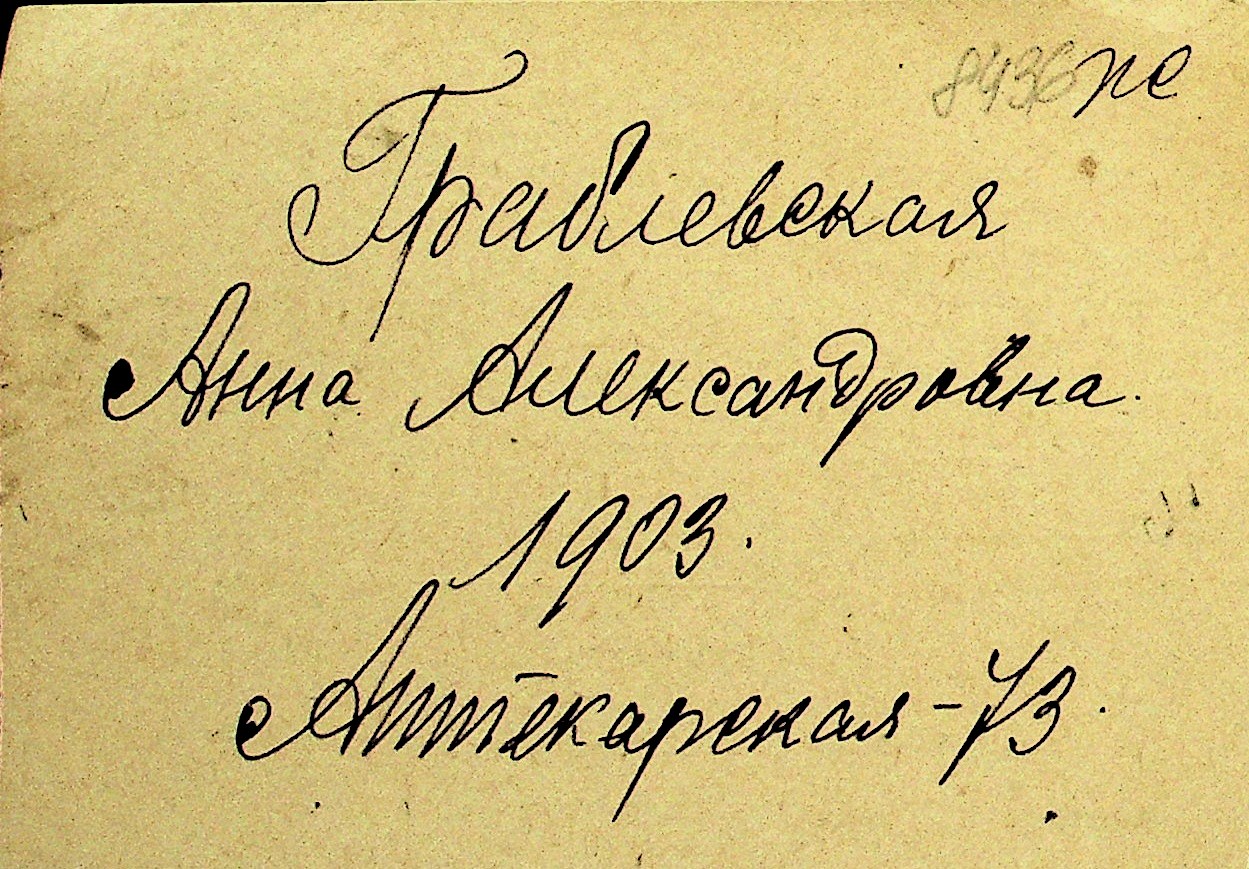 8436 пс
Граблевская
Анна Александровна.
1903.
Аптекарская - 73.